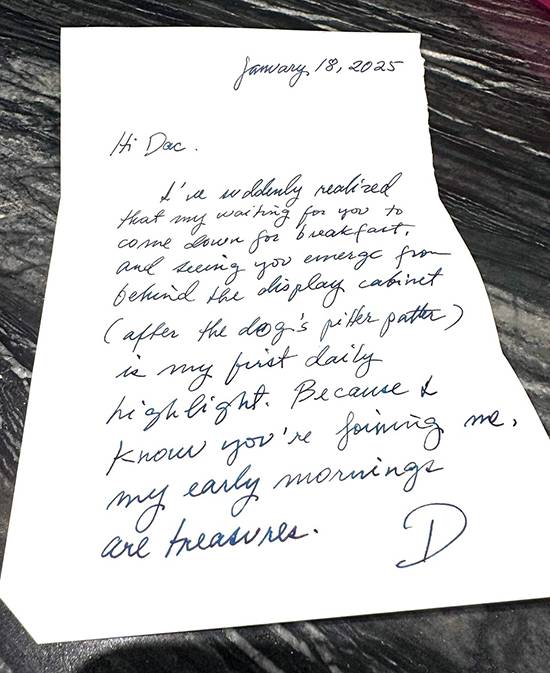 January 18, 2025
Hi Dac.
I've suddenly realized
that my waiting for you to
come down for breakfast,
and seeing you emerge from
behind the display cabinet
(after the dog's pitter patter)
is my first daily
highlight. Because I
know you're joining me,
my early mornings
are treasures.
D